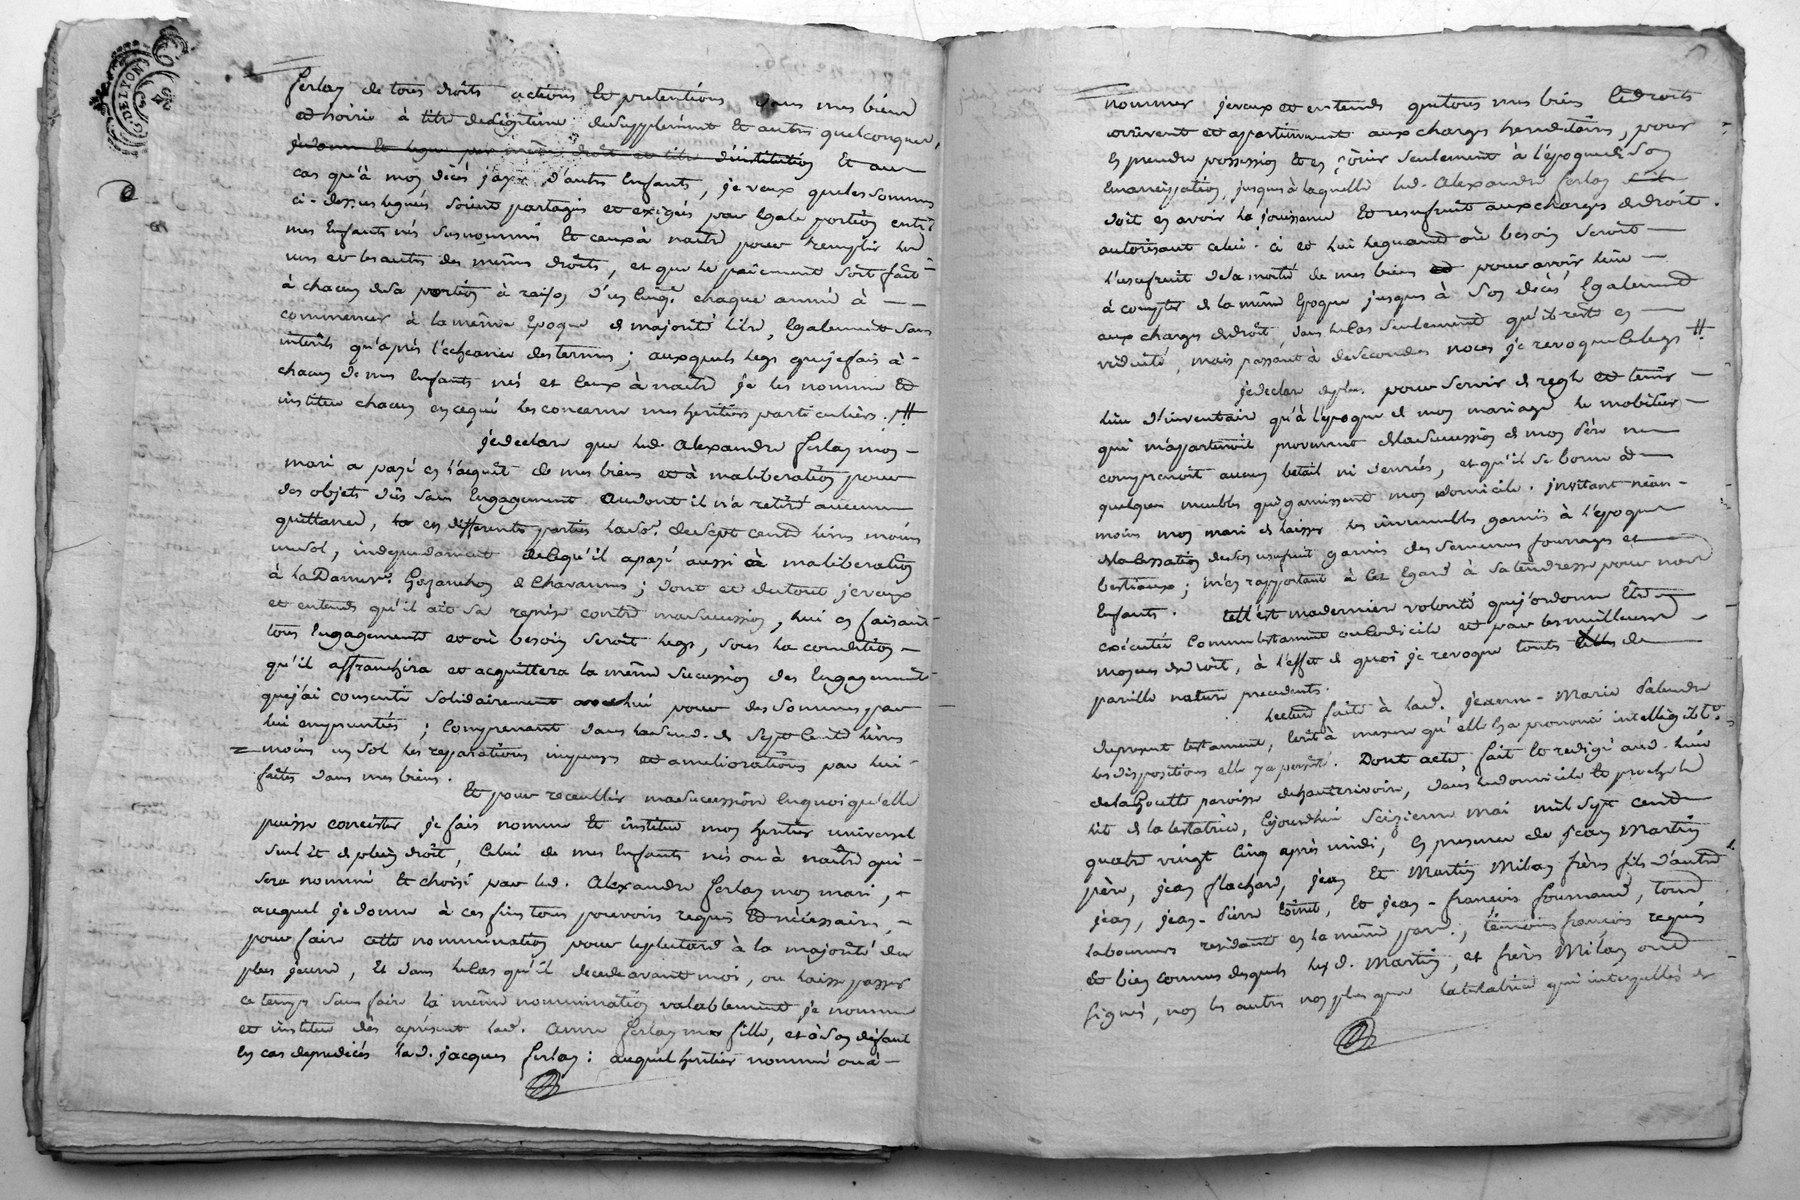 DELYON
ferlay de tous droits actions et pretentions dans mes biens
et hoirie à titre de légitime de supplément et autres quelconques,
je donne et legue par même droit et titre d'institution et au
cas qu'à mon decès j'aye d'autres enfants, je veux que les sommes
ci-dessus leguées soient partagées et exigées par egale portion entre
mes enfants nés susnommés et ceux à naitre pour remplir les
uns et les autres des mêmes droits, et que le païement soit fait
à chacun de sa portion à raison d'un cinq.e chaque année à
commencer à la même époque de majorité libre, egalement sans
intérêts qu'après l'echeance des termes; auxquels legs que je fais à
chacun de mes enfants nés et ceux à naitre je les nomme et
institue chacun en ce qui les concerne mes heritiers particuliers.
je declare que led. Alexandre ferlay mon
mari a payé en l'acquit de mes biens et à ma liberation pour
des objets dûs sans engagement et dont il n'a retiré aucune
quittance, en differentes parties la so.e de sept cents livres moins
un sol, independament de ce qu'il a payé aussi à ma liberation
à la Dame de Chavannes; dont et du tout je veux
et entends qu'il ait sa reprise contre ma succession, lui en faisant
tous engagements et où besoin seroit legs, sous la condition
qu'il affranchira et acquittera la même succession des engagements
que j'ai consenti solidairement avec lui pour des sommes par
lui empruntées; comprenant dans lad. so. de sept cents livres
moins un sol les reparations impenses et ameliorations par lui
faites dans mes biens.
Et pour recueillir ma succession en quoi qu'elle
puisse concister je fais nomme et institue mon heritier universel
seul et de plein droit, celui de mes enfants nés ou à naitre qui
sera nommé et choisi par led. Alexandre ferlay mon mari,
auquel je donne à ces fins tous pouvoirs requis et nécessaires,
pour faire cette nommination pour le plutard à la majorité du
plus jeune, et dans le cas qu'il decede avant moi, ou laisse passer
ce temps sans faire la même nommination valablement je nomme
et institue dès apresent lad. anne ferlay ma fille, et à son défaut
en cas de predecès led. jacques ferlay: auquel heritier nommé ou à
nommer je veux et entends que tous mes biens et droits
arrivent et appartiennent aux charges hereditaires, pour
en prendre possession et en jouir seulement à l'époque de son
emancipation, jusques à laquelle led. Alexandre ferlay
doit en avoir la jouissance et usufruit aux charges de droit.
autorisant celui-ci et lui leguant où besoin seroit
l'usufruit de la moitié de mes biens pour avoir lieu
à compter de la même epoque jusques à son décès egalement
aux charges de droit, dans le cas seulement qu'il reste en
viduité, mais passant à de secondes noces je revoque le legs
je declare de plus pour servir de regle et tenir
lieu d'inventaire qu'à l'époque de mon mariage le mobilier
qui m'appartenoit provenant de la succession de mon père ne
comprenoit aucun betail ni denrées, et qu'il se borne à
quelques meubles qui garnissent mon domicile. invitant néan-
moins mon mari de laisser les immeubles garnis à l'époque
de la cessation de son usufruit garnis des semences fourrages et
bestiaux; m'en rapportant à cet egard à sa tendresse pour nos
enfants. tell'est ma derniere volonté que j'ordonne être
exécutée comme testament ou codicile et par les meilleurs
moyens de droit, à l'effet de quoi je revoque touts de
pareille nature precedents.
Lecture faite à lad. jeanne-Marie Palandre
du present testament, ecrit à mesure qu'elle en a prononcé intelligiblt.
les dispositions elle y a persisté. Dont acte, fait et redigé aud. lieu
de la Goutte paroisse de hauterivoire, dans le domicile et proche le
lit de la testatrice, cejourdhui seizieme mai mil sept cent
quatre vingt cinq après midi, en presence de jean Martin
père, jean flachard, jean et Martin Milan frères fils d'autre
jean, jean-Pierre, et jean-françois fournaud, tous
laboureurs residants en la même par., témoins françois requis
et bien connus desquels lesd. Martin, et frères Milan ont
signé, non les autres non plus que la testatrice qui interpellés de